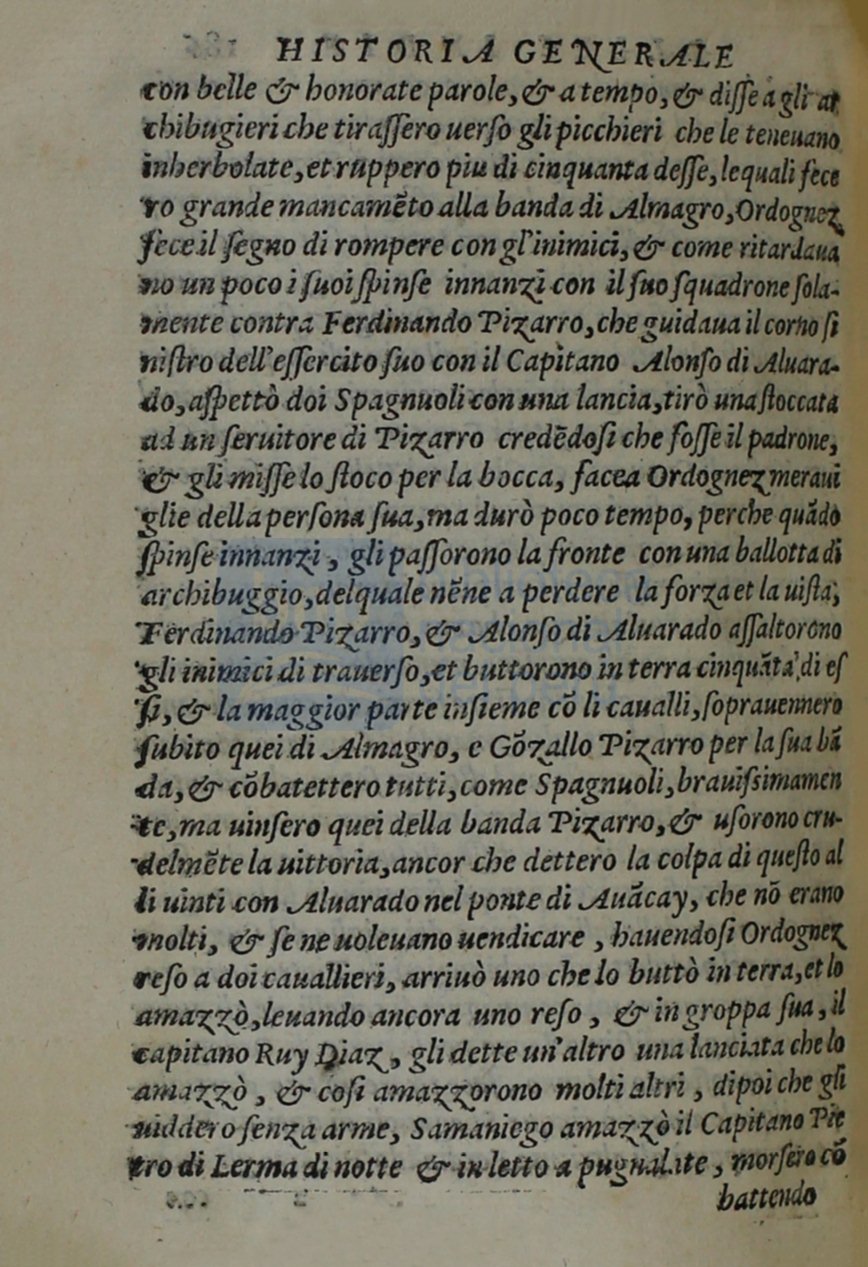 HISTORIA GENERALE
con belle & honorate parole, & a tempo, & disse a gli ar
chibugieri che tirassero uerso gli picchieri che le teneuano
inherbolate, et ruppero piu di cinquanta desse, lequali fece
ro grande mancamẽto alla banda di Almagro, Ordognez
fece il segno di rompere con gl'inimici, & come ritardaua
no un poco i suoi spinse innanzi con il suo squadrone sola-
mente contra Ferdinando Pizarro, che guidaua il corno si
nistro dell'essercito suo con il Capitano Alonso di Aluara-
do, aspettò doi Spagnuoli con una lancia, tirò una stoccata
ad un seruitore di Pizarro credẽdosi che fosse il padrone,
& gli misse lo stoco per la bocca, facea Ordognez meraui
glie della persona sua, ma durò poco tempo, perche quãdo
spinse innanzi, gli passorono la fronte con una ballotta di
archibuggio, delquale nẽne a perdere la forza et la uista,
Ferdinando Pizarro, & Alonso di Aluarado assaltorono
gli inimici di trauerso, et buttorono in terra cinquãta di es
si, & la maggior parte insieme cõ li caualli, soprauennero
subito quei di Almagro, e Gõzallo Pizarro per la sua bã
da, & cõbatettero tutti, come Spagnuoli, brauissimamen
te, ma uinsero quei della banda Pizarro, & usorono cru-
delmẽte la uittoria, ancor che dettero la colpa di questo al
li uinti con Aluarado nel ponte di Auãcay, che nõ erano
molti, & se ne uoleuano uendicare, hauendosi Ordognez
reso a doi cauallieri, arriuò uno che lo buttò in terra, et lo
amazzò, leuando ancora uno reso, & in groppa sua, il
capitano Ruy Diaz, gli dette un'altro una lanciata che lo
amazzò, & cosi amazzorono molti altri, dipoi che gli
uiddero senza arme, Samaniego amazzò il Capitano Pie
tro di Lerma di notte & in letto a pugnalate, morsero cõ
battendo